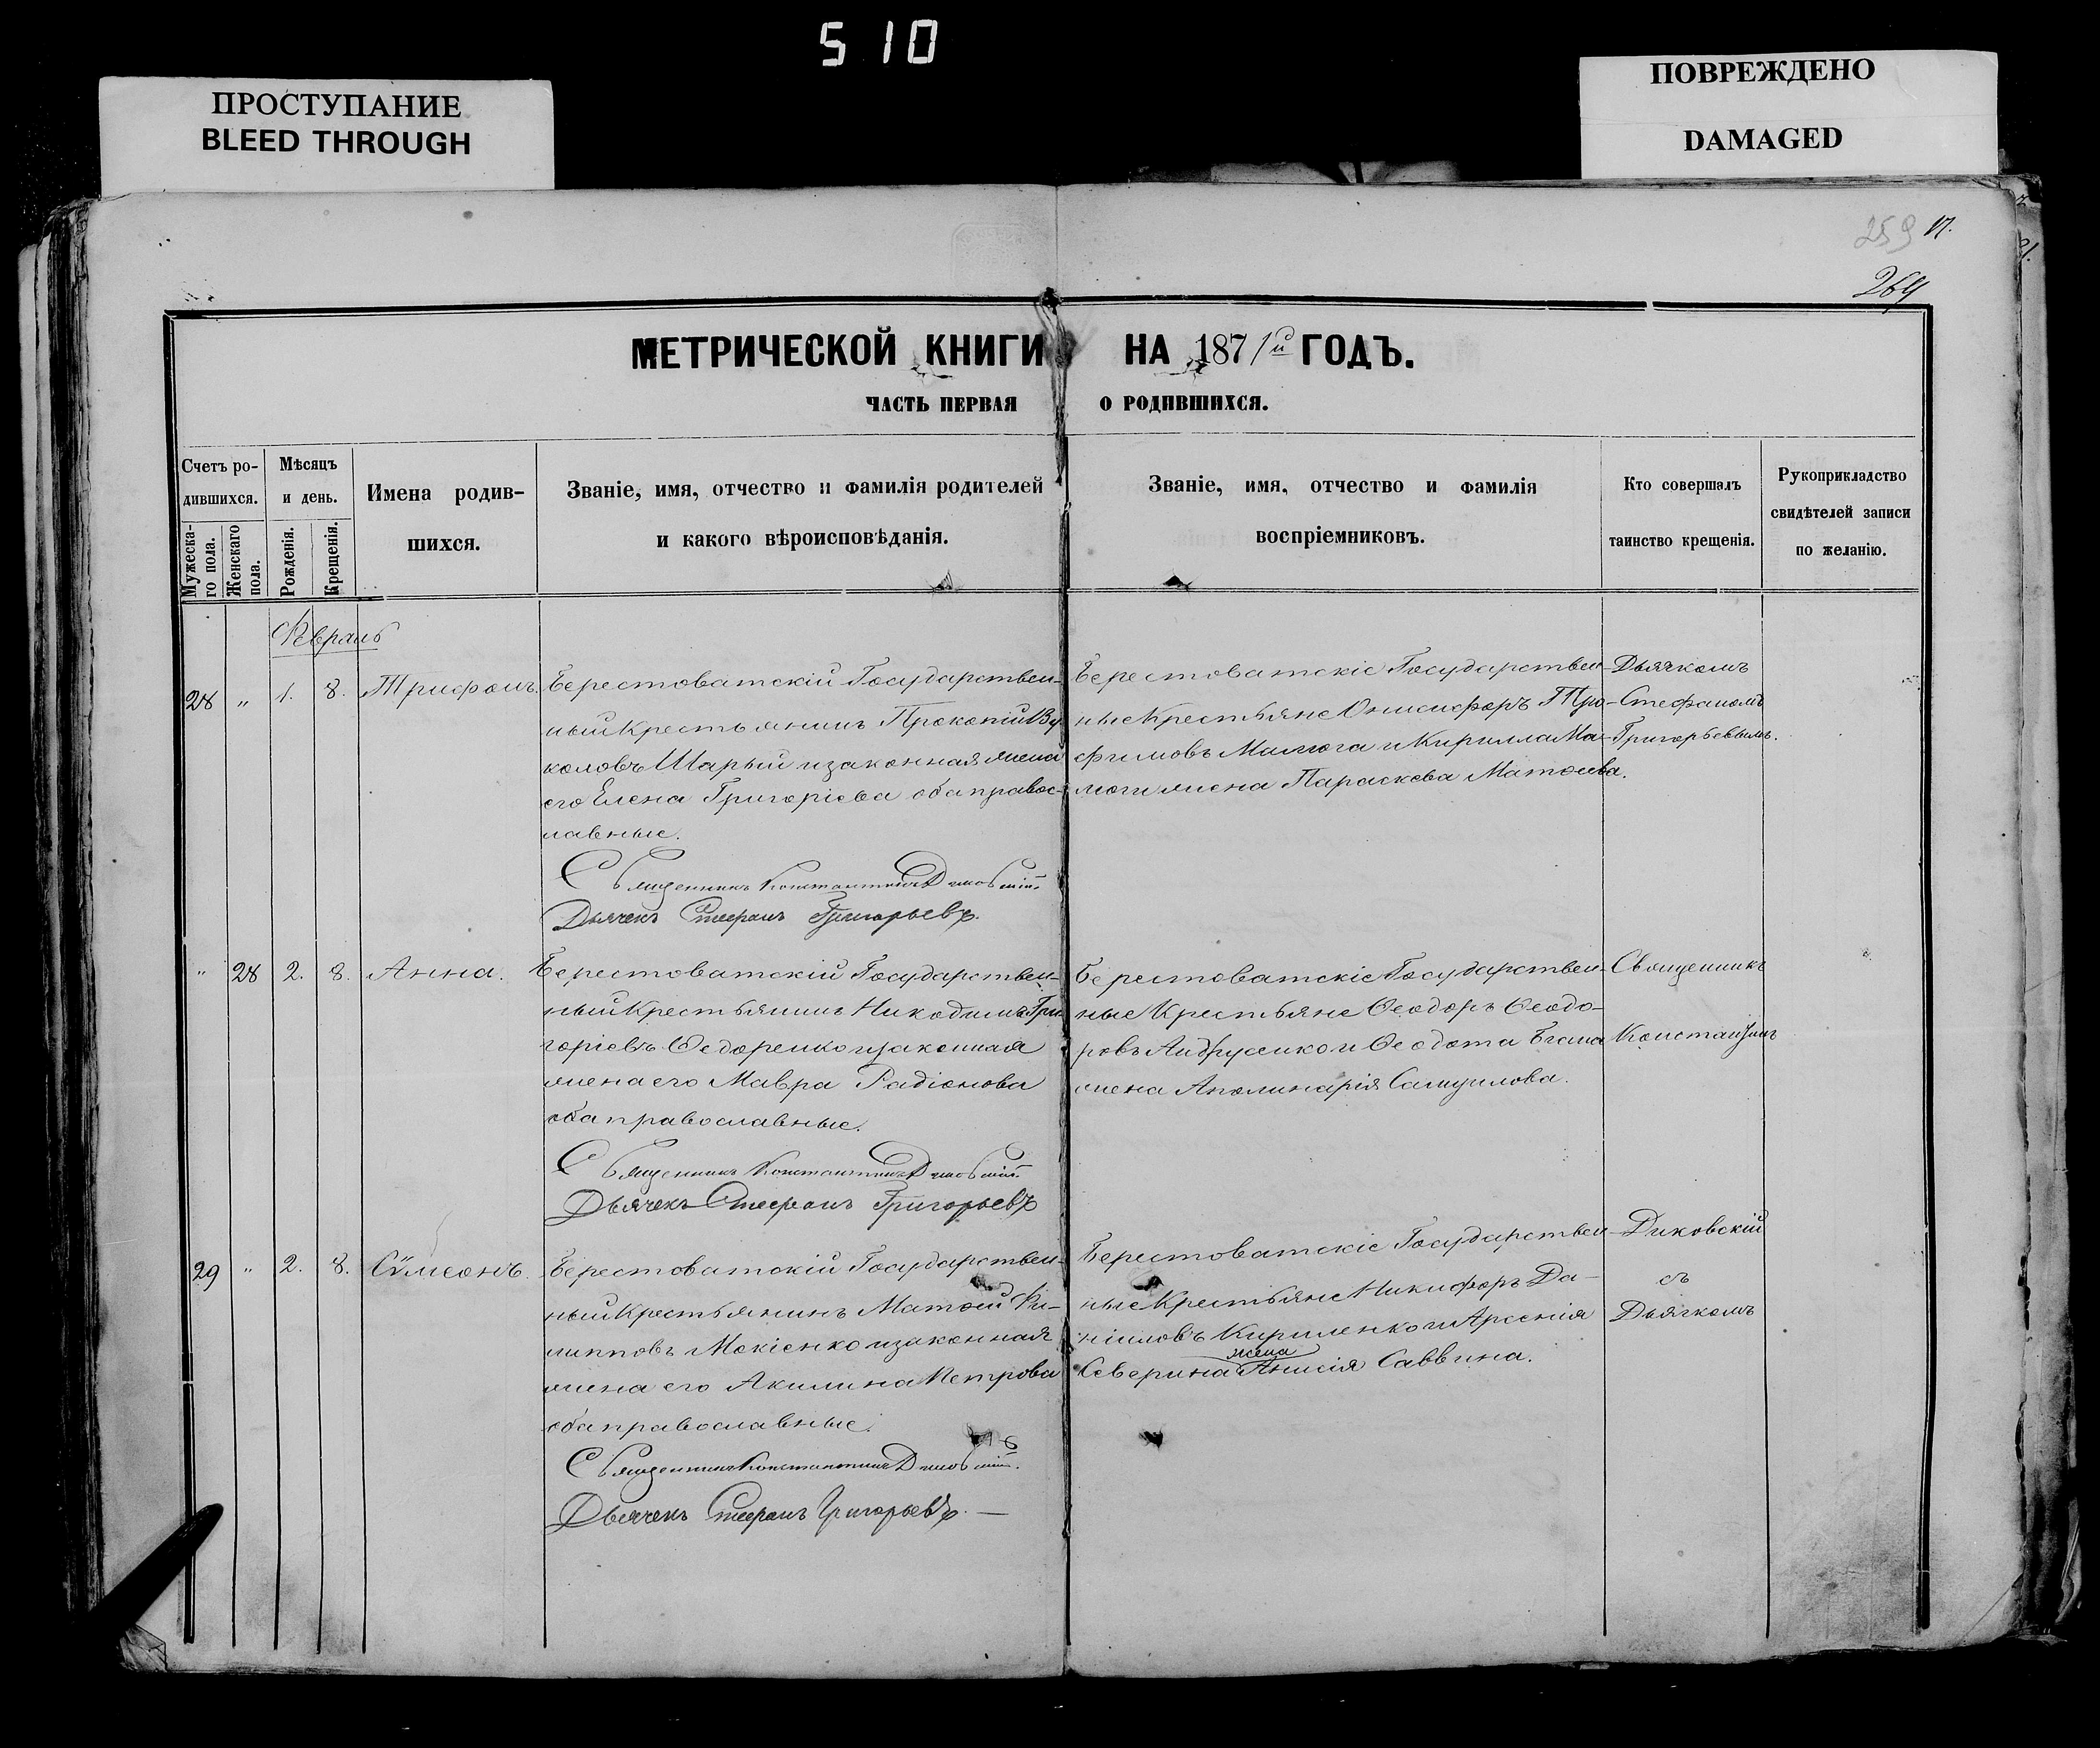 510
ПРОСТУПАНИЕ
BLEED THROUGH
ПОВРЕЖДЕНО
DAMAGED
259 17.
264
МЕТРИЧЕСКОЙ КНИГИ НА 1871й ГОДЪ.
ЧАСТЬ ПЕРВАЯ О РОДИВШИХСЯ.
Счетъ ро-
дившихся.
Мужеска-
го пола.
Женскаго
пола.
Мѣсяцъ
и день.
Рожденія.
Крещенія.
Имена родив-
шихся.
Званіе, имя, отчество и фамилія родителей
и какого вѣроисповѣданія.
Званіе, имя, отчество и фамилія
воспріемниковъ.
Кто совершалъ
таинство крещенія.
Рукоприкладство
свидѣтелей записи
по желанію.
Февраль
28 " 1. 8. Трифонъ.
Берестоватскій Государствен-
ный Крестьянинъ Прокопій Ву-
коловъ Шарый и законная жена
его Елена Григоріева оба правос-
лавные.
Священникъ Константинъ Диковскій
Дьячекъ Стефанъ Григорьевъ.
Берестоватскіе Государствен-
ные Крестьяне Онисифоръ Тро-
фимовъ Малюга и Кирилла Ма-
люги жена Параскева Матѳиева.
Дьячкомъ
Стефаномъ
Григорьевымъ.
" 28 2. 8. Анна.
Берестоватскій Государствен-
ный Крестьянинъ Никодимъ Гри-
горіевъ Ѳедоренко и законная
жена его Мавра Радіонова
оба православные.
Священникъ Константинъ Диковскій
Дьячекъ Стефанъ Григорьевъ
Берестоватскіе Государствен-
ные Крестьяне Ѳеодоръ Ѳеодо-
ровъ Андрусенко и Ѳеодота
жена Аполинарія Самуилова.
Священникъ
Константинъ
29 " 2. 8. Сѵмеонъ.
Берестоватскій Государствен-
ный Крестьянинъ Матѳей Фи-
липповъ Мокіенко и законная
жена его Акилина Петрова
оба православные.
Священникъ Константинъ Диковскій.
Дьячекъ Стефанъ Григорьевъ. —
Берестоватскіе Государствен-
ные Крестьяне Никифоръ Да-
ніиловъ Кириленко и Арсенія
жена
Северина Анисія Саввина.
Диковскій
съ
Дьячкомъ